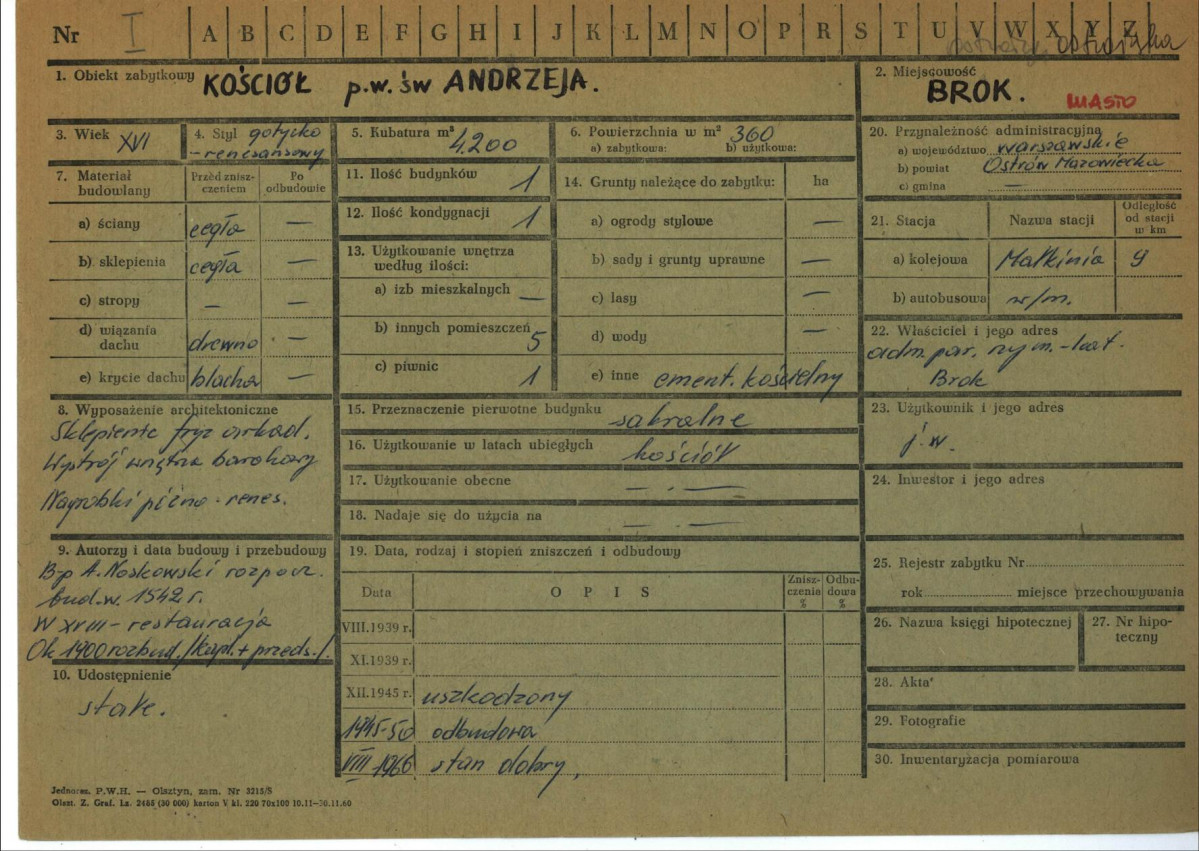 Nr I A B C D E F G H I J K L M N O P R S T U V W X Y Z
1. Obiekt zabytkowy KOŚCIÓŁ p.w. św ANDRZEJA.
2. Miejscowość
BROK. MIASTO
3. Wiek XVI
4. Styl gotycko
-renesansowy
5. Kubatura m³
4.200
6. Powierzchnia w m² 360
a) zabytkowa: b) użytkowa:
20. Przynależność administracyjna
a) województwo warszawskie
b) powiat Ostrów Mazowiecka
c) gmina —
7. Materiał
budowlany
Przed znisz-
czeniem
Po
odbudowie
a) ściany cegła —
b) sklepienia cegła —
c) stropy — —
d) wiązania
dachu drewno —
e) krycie dachu blacha —
11. Ilość budynków 1
12. Ilość kondygnacji 1
13. Użytkowanie wnętrza
według ilości:
a) izb mieszkalnych —
b) innych pomieszczeń 5
c) piwnic 1
14. Grunty należące do zabytku: ha
a) ogrody stylowe —
b) sady i grunty uprawne —
c) lasy —
d) wody —
e) inne cment. kościelny
21. Stacja Nazwa stacji
Odległość
od stacji
w km
a) kolejowa Małkinia 9
b) autobusowa w/m.
22. Właściciel i jego adres
adm. par. rzym.-kat.
Brok
8. Wyposażenie architektoniczne
Sklepienie fryz arkad.
Wystrój wnętrza barokowy
Nagrobki późno-renes.
15. Przeznaczenie pierwotne budynku sakralne
16. Użytkowanie w latach ubiegłych kościół
17. Użytkowanie obecne — . —
18. Nadaje się do użycia na — . —
23. Użytkownik i jego adres
j.w.
24. Inwestor i jego adres
9. Autorzy i data budowy i przebudowy
B-p A. Noskowski rozpocz.
bud. w. 1542 r.
W XVIII - restauracja
Ok 1900 rozbud. /kapl. + przeds./.
10. Udostępnienie
stałe.
19. Data, rodzaj i stopień zniszczeń i odbudowy
Data OPIS
Znisz-
czenia
%
Odbu-
dowa
%
VIII.1939 r.
XI.1939 r.
XII.1945 r. uszkodzony
1945-50 odbudowa
VIII 1966 stan dobry.
25. Rejestr zabytku Nr
rok miejsce przechowywania
26. Nazwa księgi hipotecznej
27. Nr hipo-
teczny
28. Akta
29. Fotografie
30. Inwentaryzacja pomiarowa
Jednoraz. P.W.H. — Olsztyn, zam. Nr 3215/S
Olszt. Z. Graf. Lz. 2465 (30 000) karton V kl. 220 70x100 10.11—30.11.60